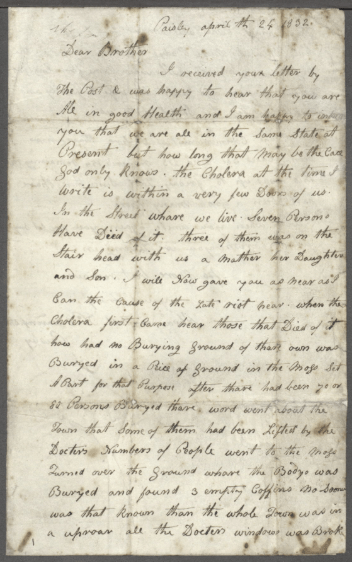 Paisley april th 24 1832.
Dear Brother
I received your letter by
the Post & was happy to hear that you are
All in good Health and I am happy to inform
you that we are all in the Same State at
Present but how long that May be the Case
God only Knows. the Cholera at the time I
Write is within a very few Doors of us.
In the Street whare we live Seven Persons
Have Died of it three of them was on the
Stair head with us a mother her Daughter
and Son. I will Now gave you as near as I
Can the Cause of the Late riot hear. when the
Cholera first Came hear those that Died of it
how had no Burying ground of thair own was
Buryed in a Pice of ground in the Moss Set
A Part for that Purpose after thare had been
88 Persons Buryed thare word went about the
Town that Some of them had been Lifted by the
Docters Numbers of People went to the Moss
Turned over the Ground whare the Bodys was
Buryed and found 3 empty Coffins No Sooner
was that Known than the whole Town was in
a uproar all the Docters windows was Brok